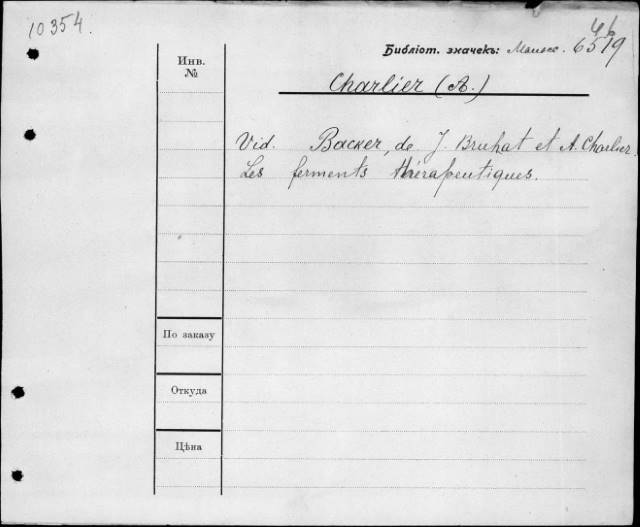 10354.
46
Библіот. значекъ: 6519
Инв.
№
Charlier (A.)
Vid. Backer, de J. Bruhat et A. Charlier.
Les ferments thérapeutiques.
По заказу
Откуда
Цѣна